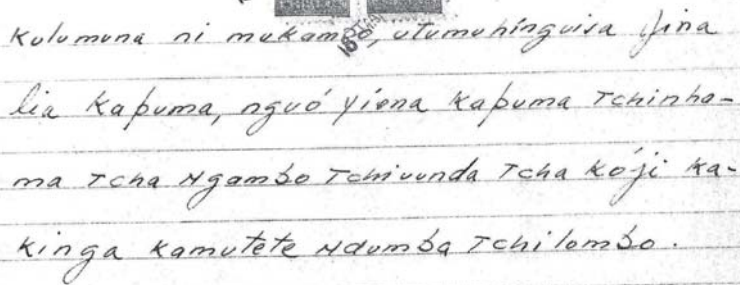 Kulumuna ni mukambo, utumuhinguisa jina
lia Kapuma, nguó yiena Kapuma Tchinha-
ma Tcha Ngambo Tchivunda Tcha Kóji ka-
kinga kamutete Ndumba Tchilombo.